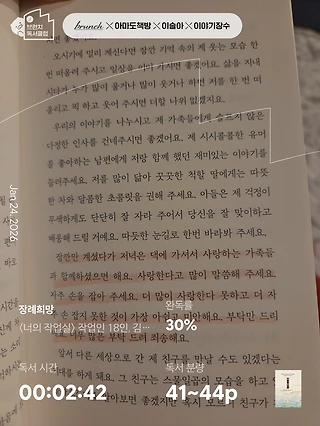 브런치
독서클럽
brunch × 아마도책방 × 이슬아 × 이야기장수
오시기에 멀리 계신다면 잠깐 기억 속의 제 웃는 모습 한
번 떠올려 주시고 일상을 이어 가시면 좋겠어요. 삶을 지내
시다가 누가 많이 울거나 많이 웃거나 하면 저를 한 번 떠
올리고 픽 하고 웃어 주시면 더할 나위 없겠지요.
우리의 이야기를 나누시고 제 가족들에게 슬프지 않은
다정한 인사를 건네주시면 좋겠어요. 제 시시콜콜한 유머
를 좋아하는 남편에게 저랑 함께 했던 재미있는 이야기를
들려주세요. 저를 많이 닮아 꿋꿋한 척할 딸에게는 따뜻
한 차와 달콤한 초콜릿을 권해 주세요. 아들은 제 걱정이
무색하게도 단단히 잘 자라 주어서 당신을 잘 맞이하고
배웅해 드릴 거예요. 따뜻한 눈길로 한번 바라봐 주세요.
잠깐만 계셨다가 저녁은 댁에 가셔서 사랑하는 가족들
과 함께하셨으면 해요. 사랑한다고 많이 말씀해 주세요.
자주 손을 잡아 주세요. 더 많이 사랑한다 못하고 더 자
주 손 잡지 못한 것이 가장 아쉽고 미안해요. 부탁만 드리
너무 많은 부탁 드려 죄송해요.
앞서 다른 세상으로 간 제 친구를 만날 수도 있겠다는
해요. 그 친구는 스물일곱의 모습을 하고
알아보면 좋겠지만 혹시 모르니 친구가
Jan 24, 2026
장례희망
<너의 작업실> 작업인 18인, 김…
완독률
30%
독서 시간
00:02:42
독서 분량
41~44p